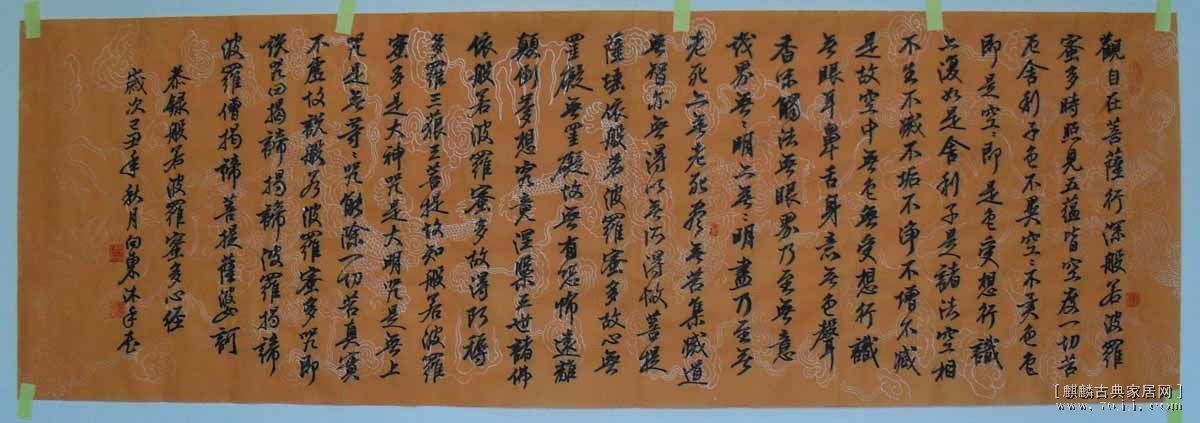 觀自在菩薩行深般若波羅
蜜多時照見五蘊皆空度一切苦
厄舍利子色不異空〻不異色色
即是空〻即是色受想行識
亦復如是舍利子是諸法空相
不生不滅不垢不淨不增不減
是故空中無色無受想行識
無眼耳鼻舌身意無色聲
香味觸法無眼界乃至無意
識界無〻明亦無〻明盡乃至無
老死亦無老死盡無苦集滅道
無智亦無得以無所得故菩提
薩埵依般若波羅蜜多故心無
罣礙無罣礙故無有恐怖遠離
顛倒夢想究竟涅槃三世諸佛
依般若波羅蜜多故得阿耨
多羅三藐三菩提故知般若波羅
蜜多是大神咒是大明咒是無上
咒是無等〻咒能除一切苦真實
不虛故說般若波羅蜜多咒即
說咒曰揭諦揭諦波羅揭諦
波羅僧揭諦菩提薩婆訶
恭錄般若波羅蜜多心經
歲次己丑年秋月向東沐手書
[麒麟古典家居网]
www.7011.com